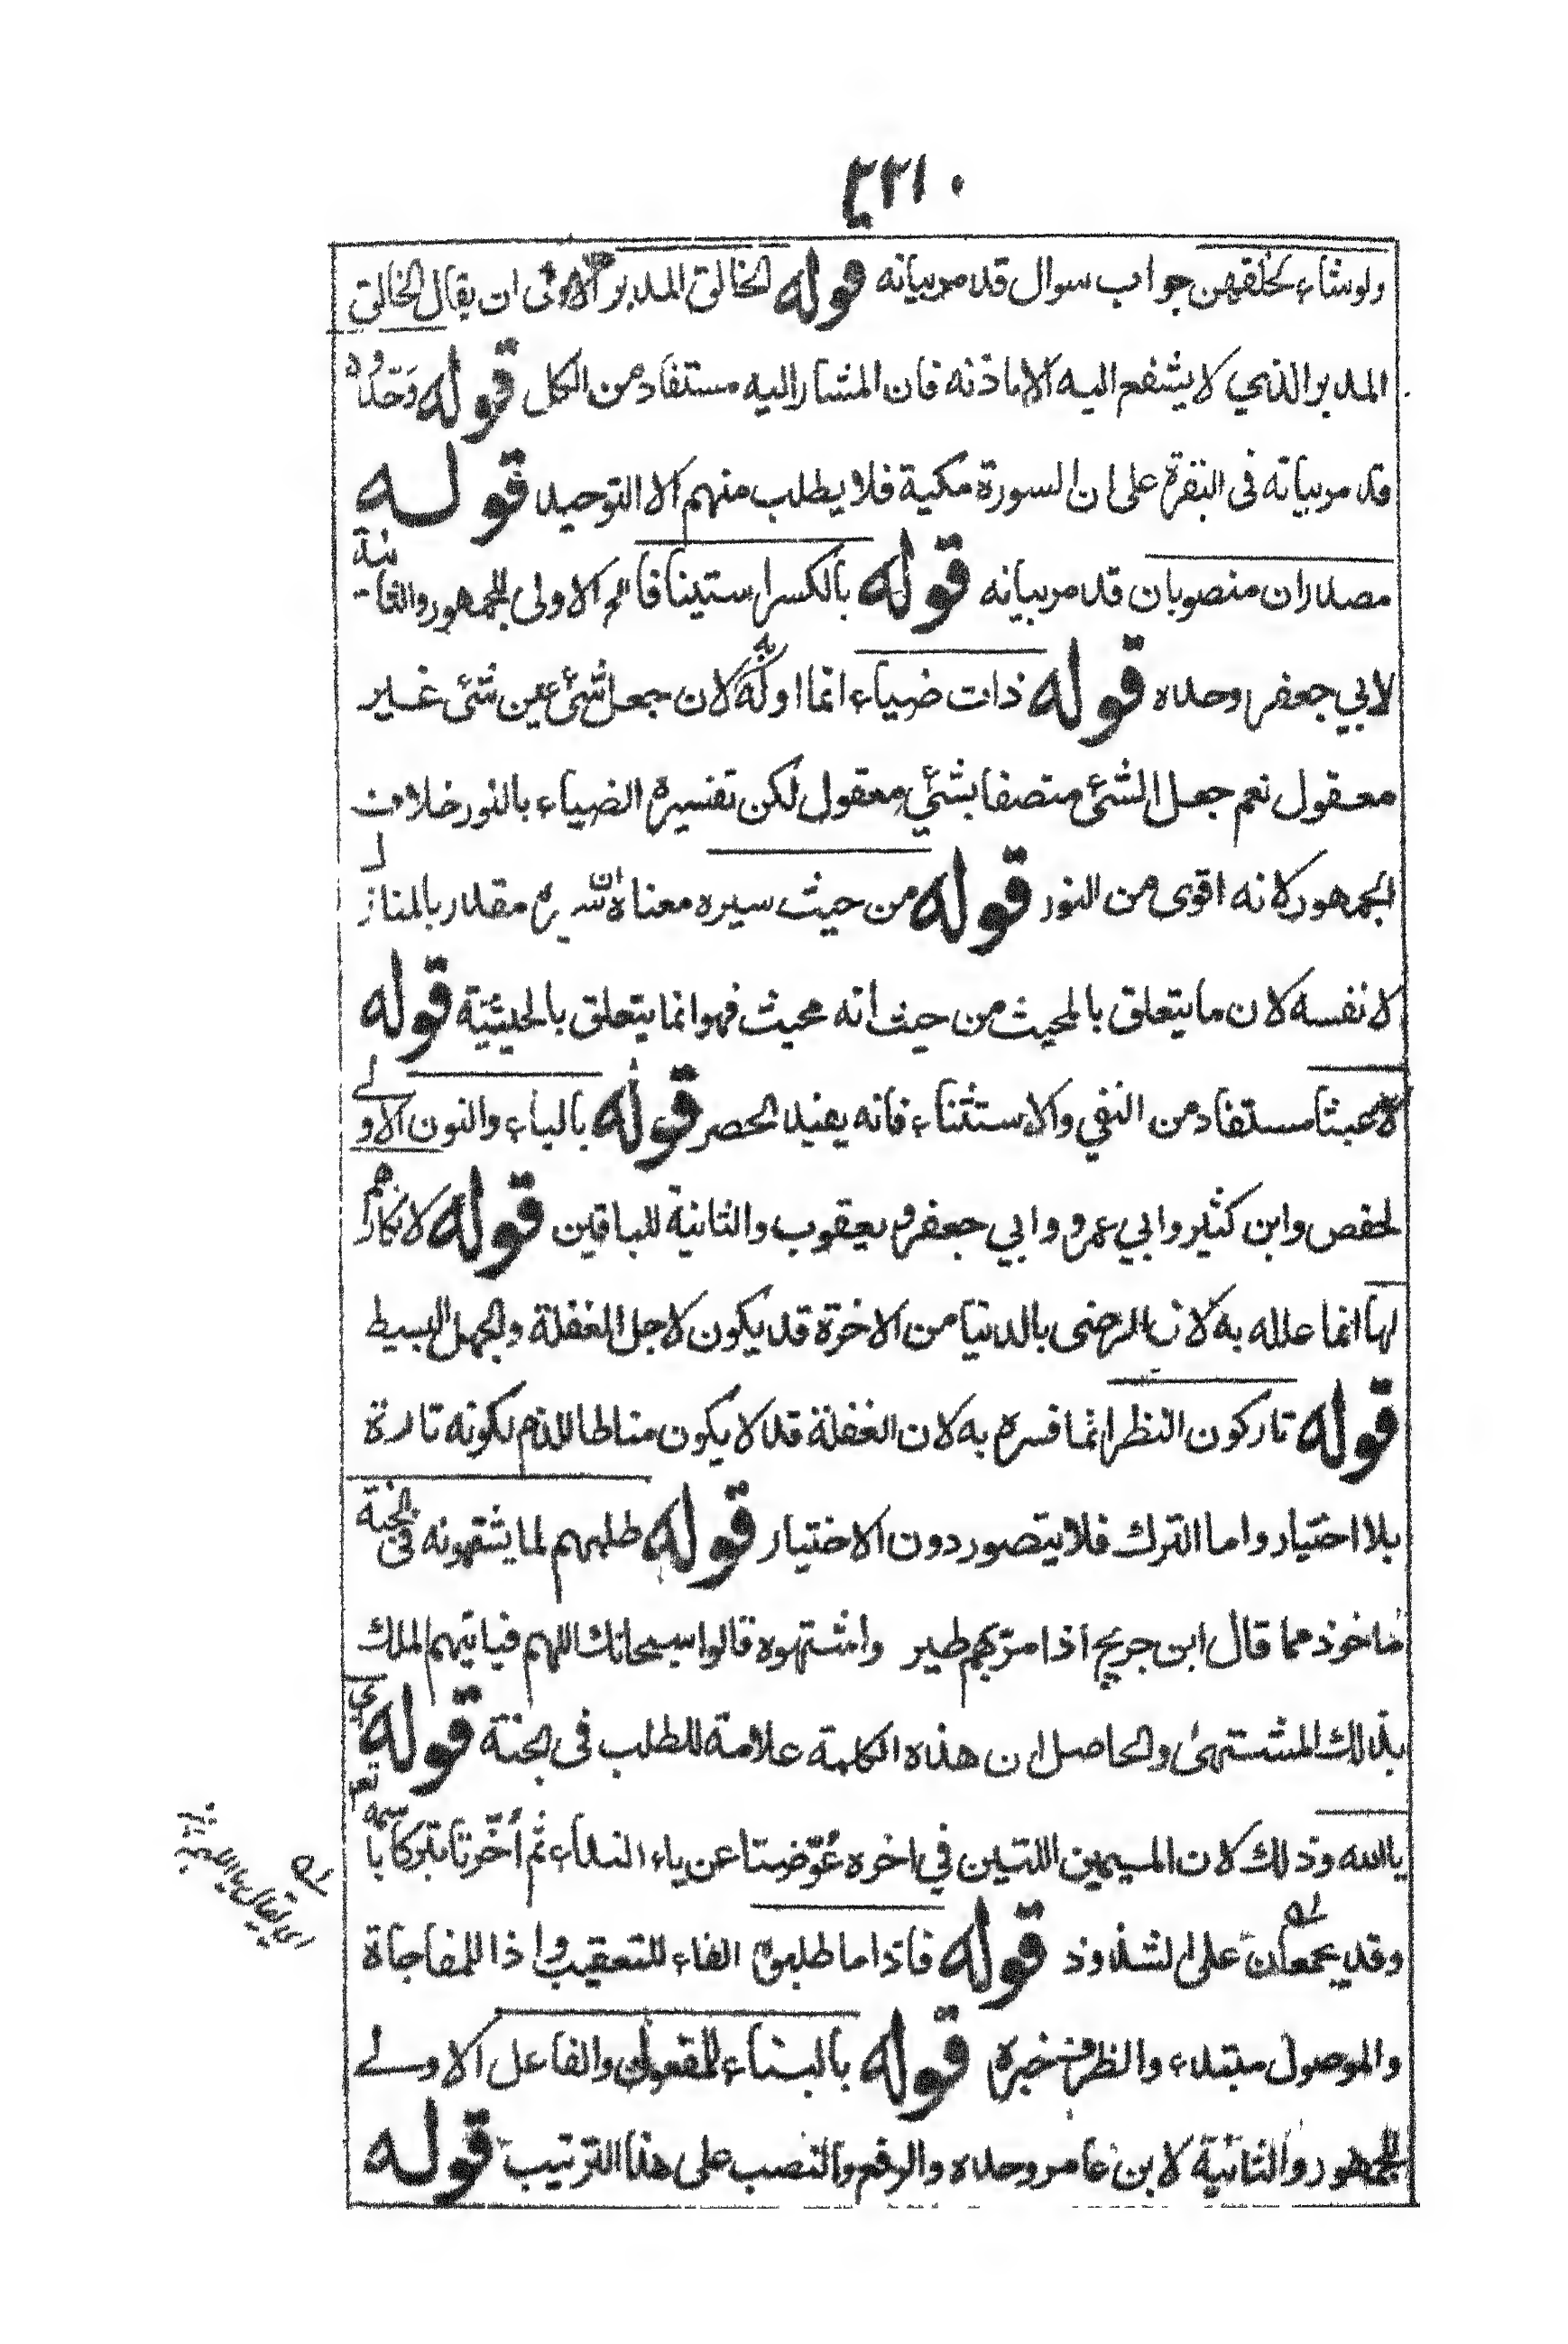 ولوشاء لخلقهن جواب سوال قد مر بيانه قوله الخالق المدبر الاولى ان يقال الخالق
المدبر الذي لا يشفع اليه الا باذنه فان المشار اليه مستفاد من الكل قوله وَحّدُوه
قد مر بيانه فى البقرة على ان السورة مكية فلا يطلب منهم الا التوحيد قوله
مصدران منصوبان قد مر بيانه قوله بالكسر استينافا الخ الاولى للجمهور والثانية
لابي جعفر وحده قوله ذات ضياء انما اوله به لان جعل شئ عين شئ غير
معقول نعم جعل الشئ متصفا بشئ معقول لكن تفسيره الضياء بالنور خلاف
الجمهور لانه اقوى من النور قوله من حيث سيره معناه ان سيره مقدر بالمنازل
لا نفسه لان ما يتعلق بالمحيث من حيث انه محيث فهو انما يتعلق بالحيثية قوله
لا عبثا مستفاد من النفي والاستثناء فانه يفيد الحصر قوله بالياء والنون الاولى
لحفص وابن كثير وابي عمرو وابي جعفر ويعقوب والثانية للباقين قوله لانكارهم
لها انما علله به لان الرضى بالدنيا من الاخرة قد يكون لاجل الغفلة والجهل البسيط
قوله تاركون النظر انما فسره به لان الغفلة قد لا يكون مناطا للذم لكونه تارة
بلا اختيار واما الترك فلا يتصور دون الاختيار قوله طلبهم لما يشتهونه فى الجنة
ماخوذ مما قال ابن جريج اذا مرّ بهم طير واشتهوه قالوا سبحانك اللهم فياتيهم الملك
بذلك المشتهىٰ والحاصل ان هذه الكلمة علامة للطلب فى الجنة قوله اي
يا الله وذلك لان الميمين اللتين في اخره عُوّضتا عن ياء النداء ثم اُخّرتا تبركا باسمه تعم
وقد يجمعان على الشذوذ قوله فاذا ما طلبوه الفاء للتعقيب واذا للمفاجاة
والموصول مبتدء والظرف خبره قوله بالبناء للمفعول والفاعل الاولى
للجمهور والثانية لابن عامر وحده والرفع والنصب على هذا الترتيب قوله